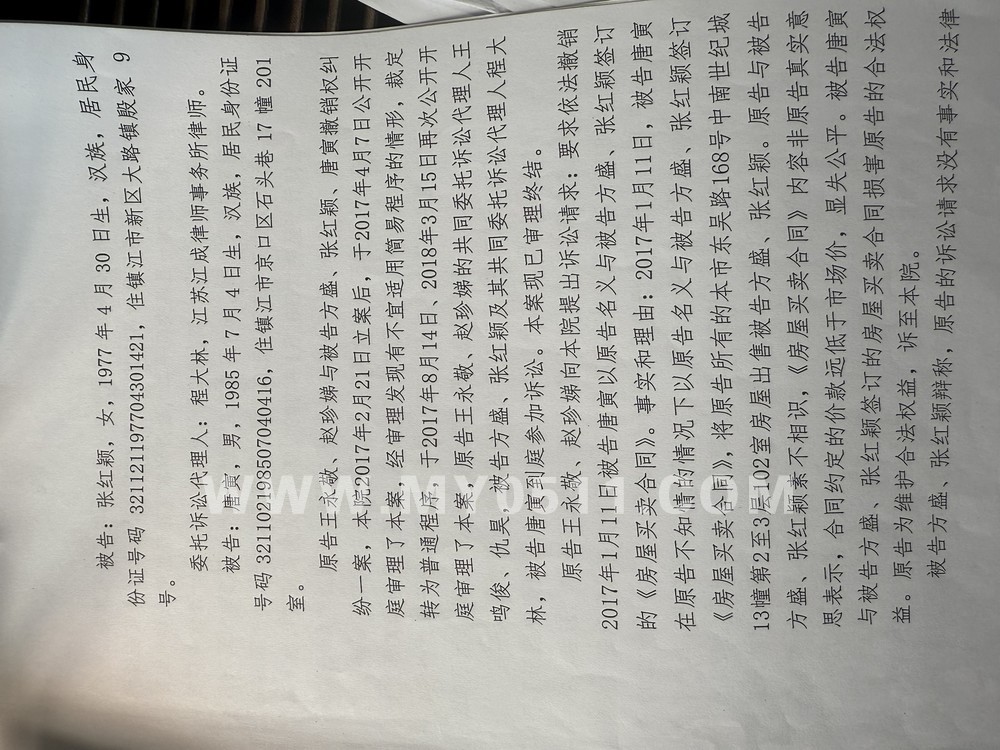 被告：张红颖，女，1977年4月30日生，汉族，居民身
份证号码321121197704301421，住镇江市新区大路镇殷家9
号。
委托诉讼代理人：程大林，江苏江成律师事务所律师。
被告：唐寅，男，1985年7月4日生，汉族，居民身份证
号码321102198507040416，住镇江市京口区石头巷17幢201
室。
原告王永敬、赵珍娣与被告方盛、张红颖、唐寅撤销权纠
纷一案，本院2017年2月21日立案后，于2017年4月7日公开开
庭审理了本案，经审理发现有不宜适用简易程序的情形，裁定
转为普通程序，于2017年8月14日、2018年3月15日再次公开开
庭审理了本案，原告王永敬、赵珍娣的共同委托诉讼代理人王
鸣俊、仇昊，被告方盛、张红颖及其共同委托诉讼代理人程大
林，被告唐寅到庭参加诉讼。本案现已审理终结。
原告王永敬、赵珍娣向本院提出诉讼请求：要求依法撤销
2017年1月11日被告唐寅以原告名义与被告方盛、张红颖签订
的《房屋买卖合同》。事实和理由：2017年1月11日，被告唐寅
在原告不知情的情况下以原告名义与被告方盛、张红颖签订
《房屋买卖合同》，将原告所有的本市东吴路168号中南世纪城
13幢第2至3层102室房屋出售被告方盛、张红颖。原告与被告
方盛、张红颖素不相识，《房屋买卖合同》内容非原告真实意
思表示，合同约定的价款远低于市场价，显失公平。被告唐寅
与被告方盛、张红颖签订的房屋买卖合同损害原告的合法权
益。原告为维护合法权益，诉至本院。
被告方盛、张红颖辩称，原告的诉讼请求没有事实和法律
WWW.MY0511.COM